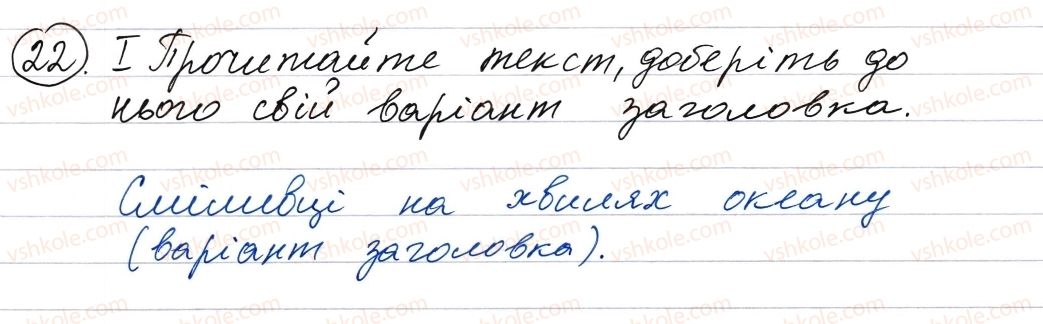 22. І Прочитайте текст, доберіть до
нього свій варіант заголовка.
Сміливці на хвилях океану
(варіант заголовка).